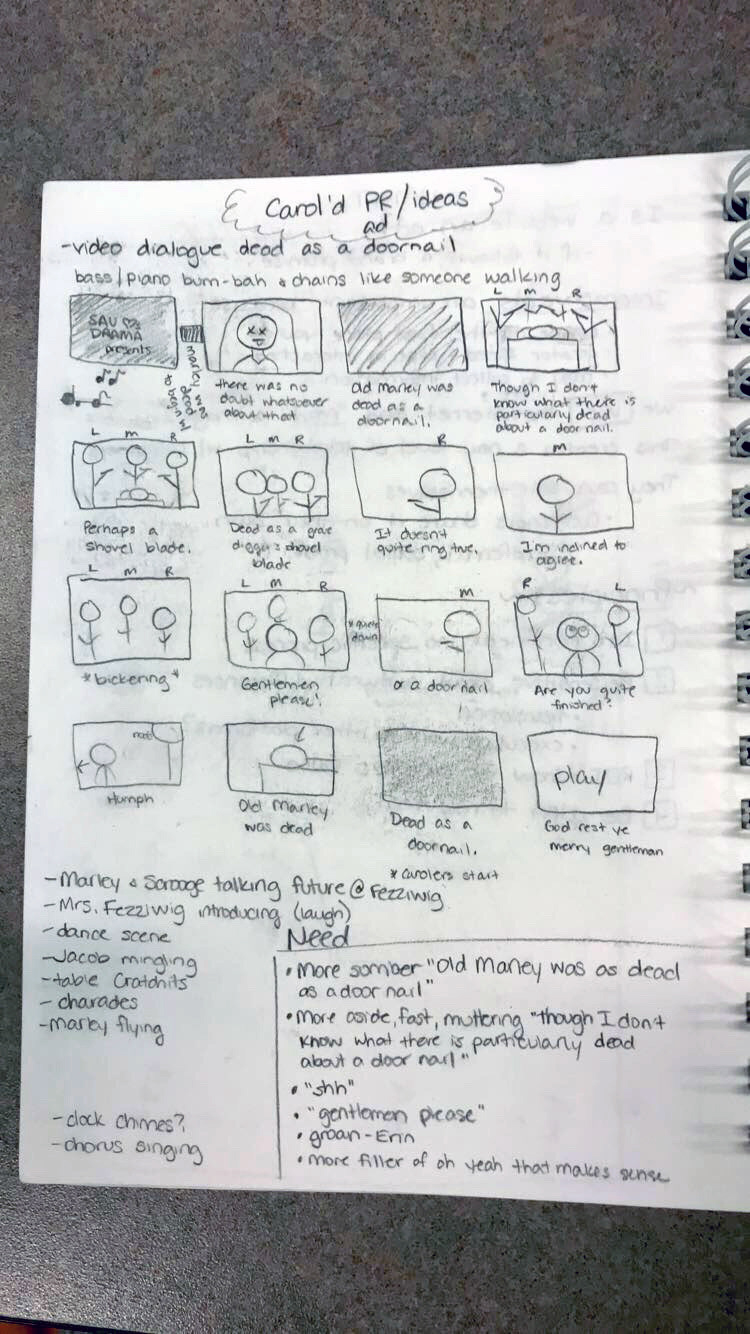 Carol'd PR/ideas
ad
-video dialogue, dead as a doornail
bass/piano bum-bah & chains like someone walking
SAU
DRAMA
presents
L M R
there was no
doubt whatsoever
about that
Old Marley was
dead as a
doornail.
Though I don't
know what there is
particularly dead
about a door nail.
L M R
L M R
R
M
Perhaps a
shovel blade.
Dead as a grave
digger's shovel
blade
It doesn't
quite ring true.
I'm inclined to
agree.
L M R
L M R
M
R L
*quiet
down
*bickering*
Gentlemen
please!
or a door nail
Are you quite
finished?
Humph
Old Marley
was dead
Dead as a
doornail.
play
God rest ye
merry gentleman
*carolers start
-Marley & Scrooge talking future @ Fezziwig
-Mrs. Fezziwig introducing (laugh)
-dance scene
-Jacob mingling
-table Cratchits
-charades
-marley flying
-clock chimes?
-chorus singing
Need
• More somber "Old Marley was as dead
as a door nail"
• More aside, fast, muttering "though I don't
know what there is particularly dead
about a door nail"
• "shh"
• "gentlemen please"
• groan-Erin
• more filler of oh yeah that makes sense